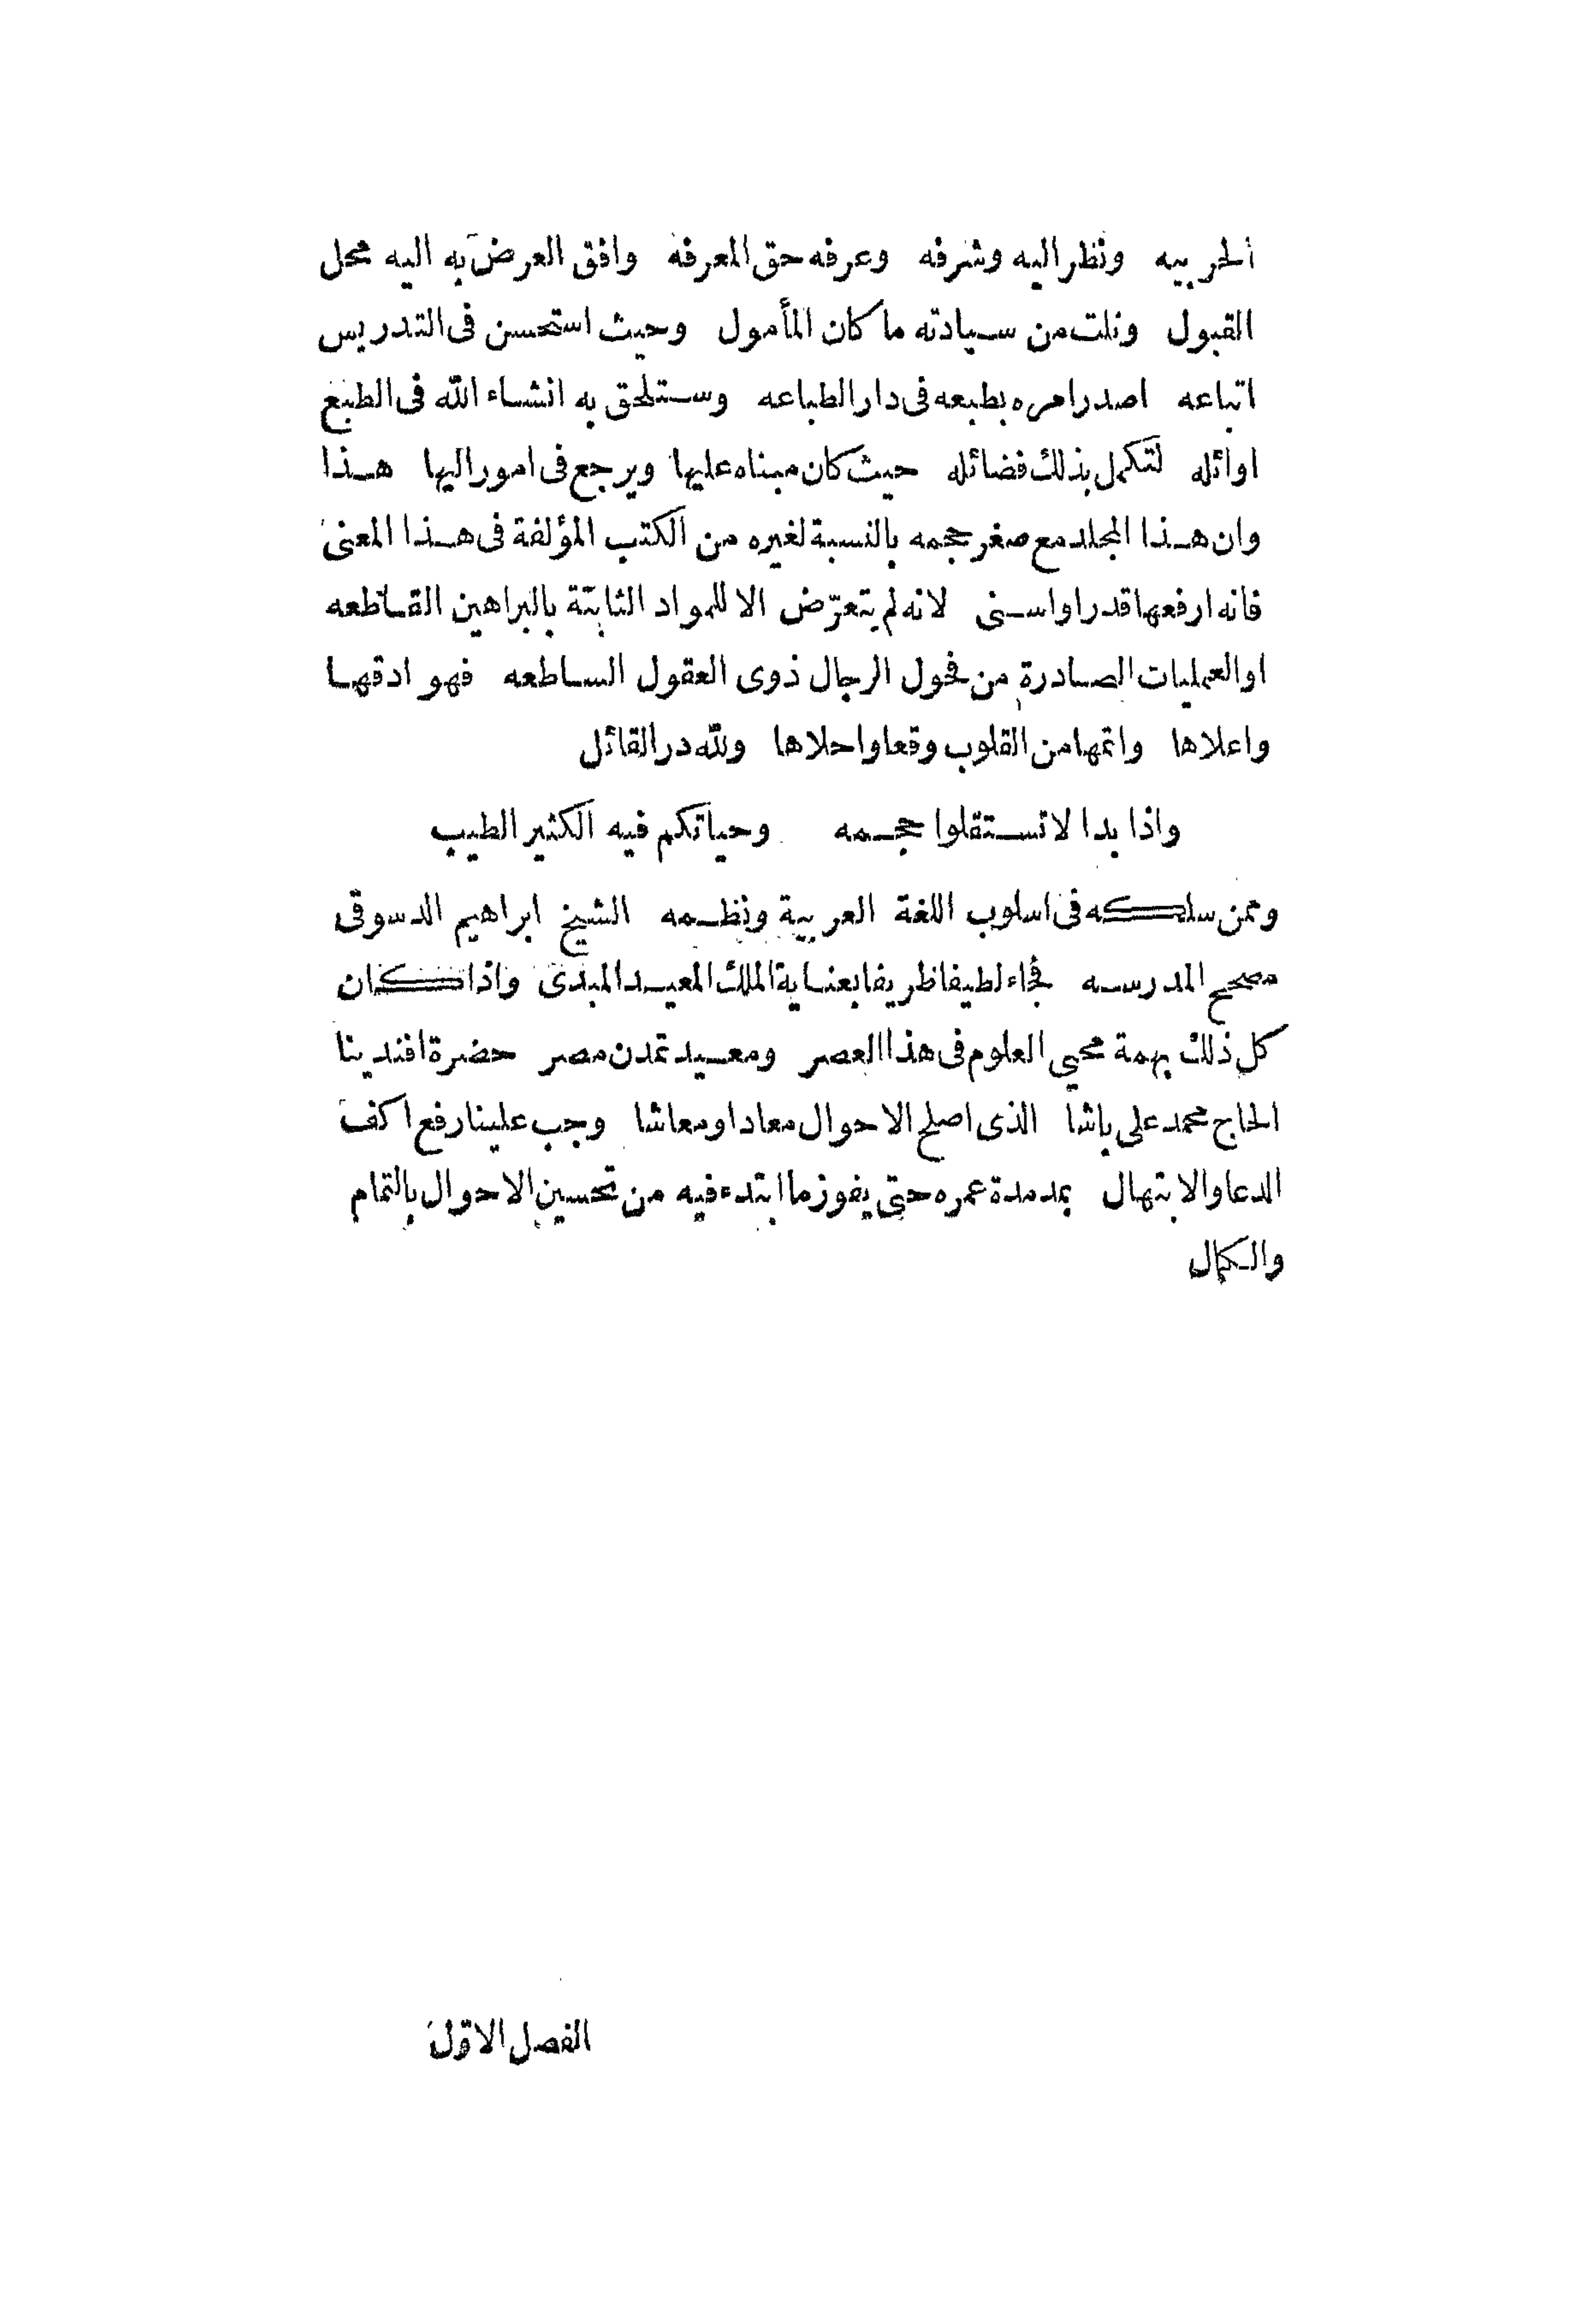 الحربيه ونظر اليه وشرفه وعرفه حق المعرفه وافق العرض به اليه محل
القبول ونلت من سيادته ما كان المأمول وحيث استحسن فى التدريس
اتباعه اصدر امره بطبعه فى دار الطباعه وستلحق به انشاء الله فى الطبع
اوائله لتكمل بذلك فضائله حيث كان مبناه عليها ويرجع فى امور اليها هذا
وان هذا المجلد مع صغر حجمه بالنسبة لغيره من الكتب المؤلفة فى هذا المعنى
فانه ارفعها قدرا واسنى لانه لم يتعرّض الا للمواد الثابتة بالبراهين القاطعه
او العمليات الصادرة من فحول الرجال ذوى العقول الساطعه فهو ادقها
واعلاها واتمها من القلوب وقعا واحلاها ولله در القائل
واذا بدا لا تستقلوا حجمه وحياتكم فيه الكثير الطيب
وممن سلكه فى اسلوب اللغة العربية ونظمه الشيخ ابراهيم الدسوقى
مصحح المدرسه فجاء لطيفا ظريفا بعناية الملك المعيد المبدى واذا كان
كل ذلك بهمة محيى العلوم فى هذا العصر ومعيد تمدن مصر حضرة افندينا
الحاج محمد على باشا الذى اصلح الاحوال معادا ومعاشا وجب علينا رفع اكف
الدعا والابتهال بمد مدة عمره حتى يفوز ما ابتدء فيه من تحسين الاحوال بالتمام
والكمال
الفصل الاوّل